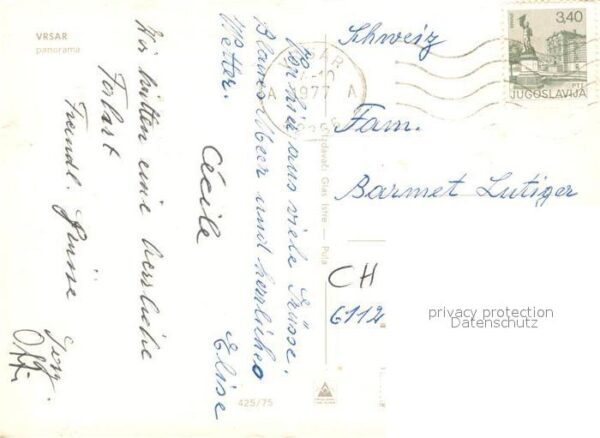 VRSAR
panorama
Von hier aus viele Grüsse.
Blaues Meer und herrliches
Wetter.
Elise
Cécile
Wir hatten eine herrliche
Fahrt
Freundl. Grüsse
VRSAR
1977
A A
3,40
JUGOSLAVIJA
Schweiz
Fam.
Barmet Lutiger
CH
6112
Izdavač: Glas Istre — Pula
425/75
privacy protection
Datenschutz